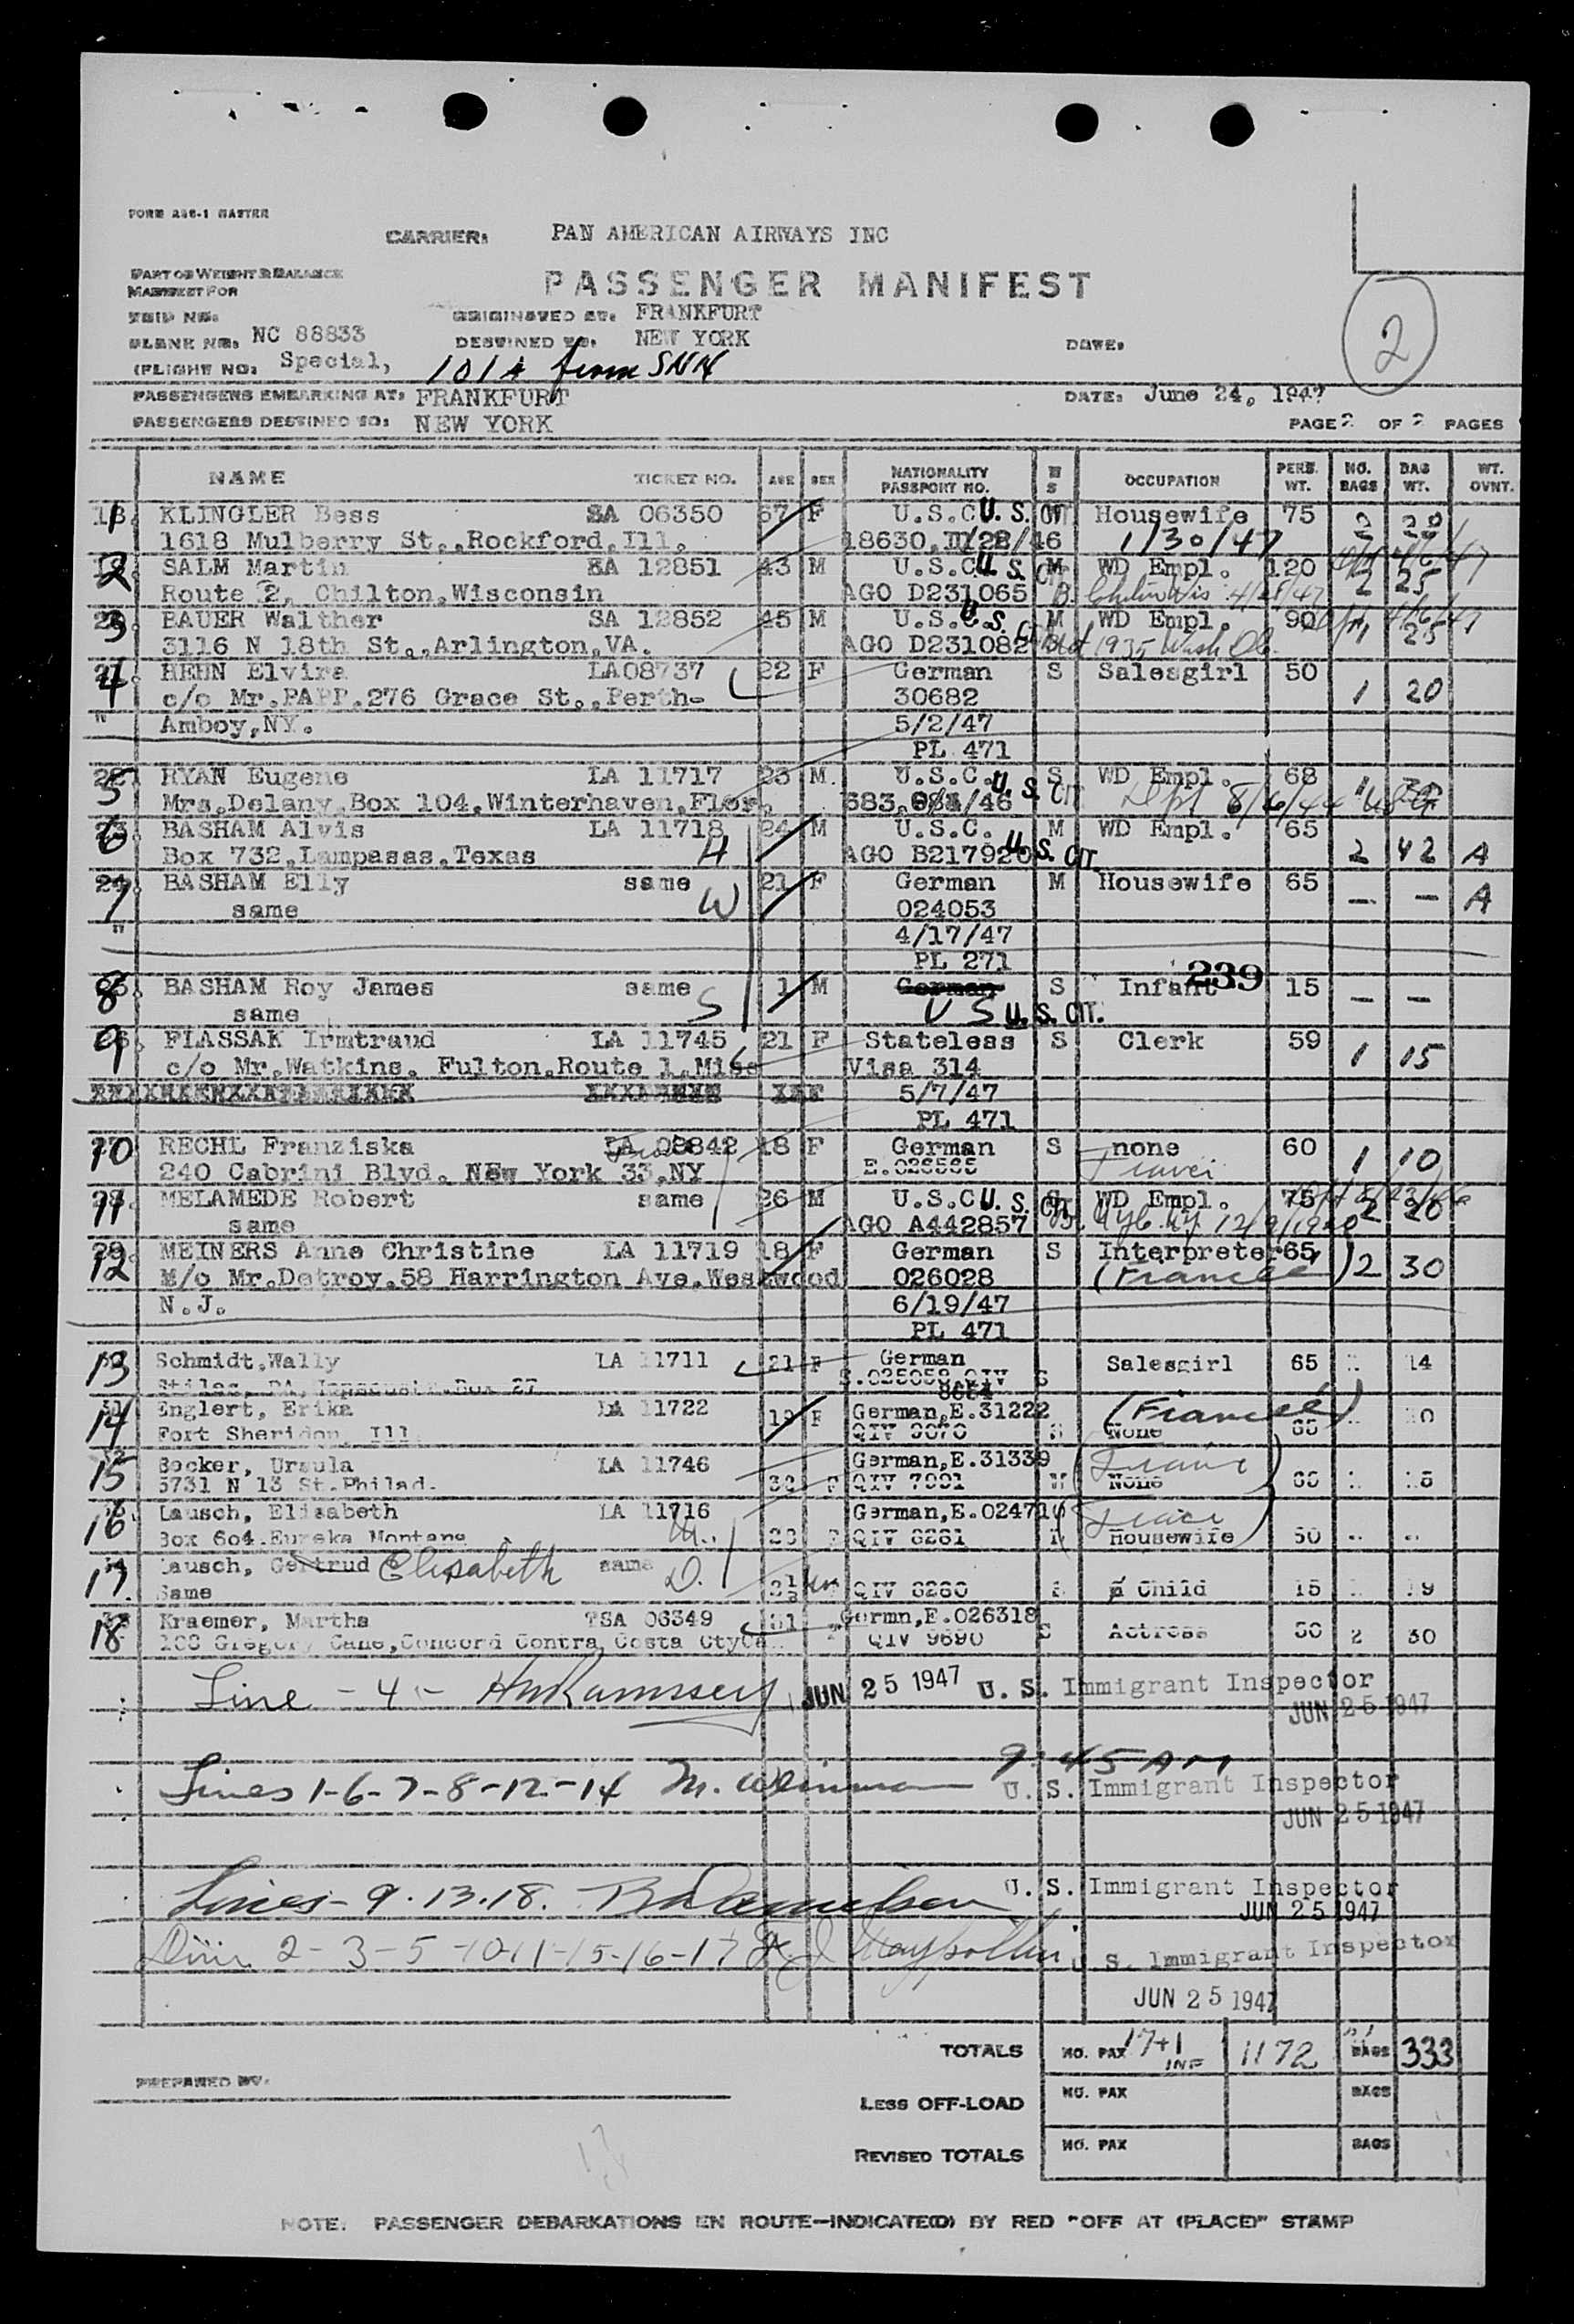 FORM 236-1 MASTER
CARRIER: PAN AMERICAN AIRWAYS INC
PART OF WEIGHT & BALANCE
MANIFEST FOR
PASSENGER MANIFEST
TRIP NO.
ORIGINATED AT: FRANKFURT
PLANE NO. NC 88833
DESTINED TO: NEW YORK
DATE:
2
(FLIGHT NO: Special, 101A from SNN
PASSENGERS EMBARKING AT: FRANKFURT DATE: June 24, 1947
PASSENGERS DESTINED TO: NEW YORK PAGE 2 OF 2 PAGES
NAME TICKET NO. AGE SEX NATIONALITY PASSPORT NO. M S OCCUPATION PERS. WT. NO. BAGS BAG WT. WT. OVNT.
1 KLINGLER Bess SA 06350 67 F U.S.C U.S. CIT Housewife 75 2 20
1618 Mulberry St.,Rockford,Ill. 18630, /46 1/30/47
2 SALM Martin SA 12851 43 M U.S.C U.S. CIT M WD Empl. 120 2 25
Route 2, Chilton,Wisconsin AGO D231065 B. Chilton Wis
3 BAUER Walther SA 12852 45 M U.S. U.S. M WD Empl. 90 1 25
3116 N 18th St.,Arlington,VA. AGO D231082 1935 Wash DC.
4 HEHN Elvira LA08737 22 F German S Salesgirl 50 1 20
c/o Mr.PAPP.276 Grace St.,Perth- 30682
" Amboy,NY. 5/2/47
PL 471
5 RYAN Eugene LA 11717 23 M. U.S.C. U.S. CIT S WD Empl. 68 1
Mrs.Delany,Box 104,Winterhaven,Flor. /46 8/6/44
6 BASHAM Alvis LA 11718 24 M U.S.C. M WD Empl. 65 2 42 A
Box 732,Lampasas,Texas H AGO B217920 U.S. CIT.
7 BASHAM Elly same 21 F German M Housewife 65 — — A
same W 024053
" 4/17/47
PL 271
239
8 BASHAM Roy James same 1 M German S Infant 15 — —
same S US U.S. CIT.
9 FLASSAK Irmtraud LA 11745 21 F Stateless S Clerk 59 1 15
c/o Mr.Watkins. Fulton.Route 1.Miss Visa 314
5/7/47
PL 471
10 RECHL Franziska LA 08842 18 F German S none 60 1 10
240 Cabrini Blvd. NEw York 33,NY E.026565
11 MELAMEDE Robert same 26 M U.S.C U.S. CIT. WD Empl. 75 2 20
same AGO A442857 12/9/1920
12 MEINERS Anne Christine LA 11719 18 F German S Interpreter 65 2 30
c/o Mr.Detroy.58 Harrington Ave,Westwood 026028 (Fiancee)
N.J. 6/19/47
PL 471
13 Schmidt,Wally LA 11711 21 F German Salesgirl 65 14
Stiles, PA, Box 27 S.025058 QIV S
14 Englert, Erika LA 11722 19 F German,E.31222 (Fiancée)
Fort Sheridon, Ill QIV None
15 Becker, Ursula LA 11746 F German,E.31339
5731 N 13 St.Philad. QIV None
16 Lausch, Elisabeth LA 11716 German,E.024716
Box 604.Eureka Montana M. F QIV Housewife 50
17 Lausch, Gertrud Elisabeth same D.
Same QIV Child 15
18 Kraemer, Martha TSA 06349 31 Germn,E.026318
Gregory Cane,Concord Contra Costa Cty QIV 9690 S Actress 2 30
Line - 4 - JUN 25 1947 U. S. Immigrant Inspector
JUN 25 1947
9:45 AM
Lines 1-6-7-8-12-14 U. S. Immigrant Inspector
JUN 25 1947
Lines - 9.13.18. U. S. Immigrant Inspector
JUN 25 1947
2-3-5-10-11-15-16-17 U. S. Immigrant Inspector
JUN 25 1947
TOTALS NO. PAX 17+1 INF 1172 BAGS 333
PREPARED BY.
LESS OFF-LOAD NO. PAX BAGS
REVISED TOTALS NO. PAX BAGS
NOTE: PASSENGER DEBARKATIONS EN ROUTE—INDICATE(D) BY RED "OFF AT (PLACE)" STAMP